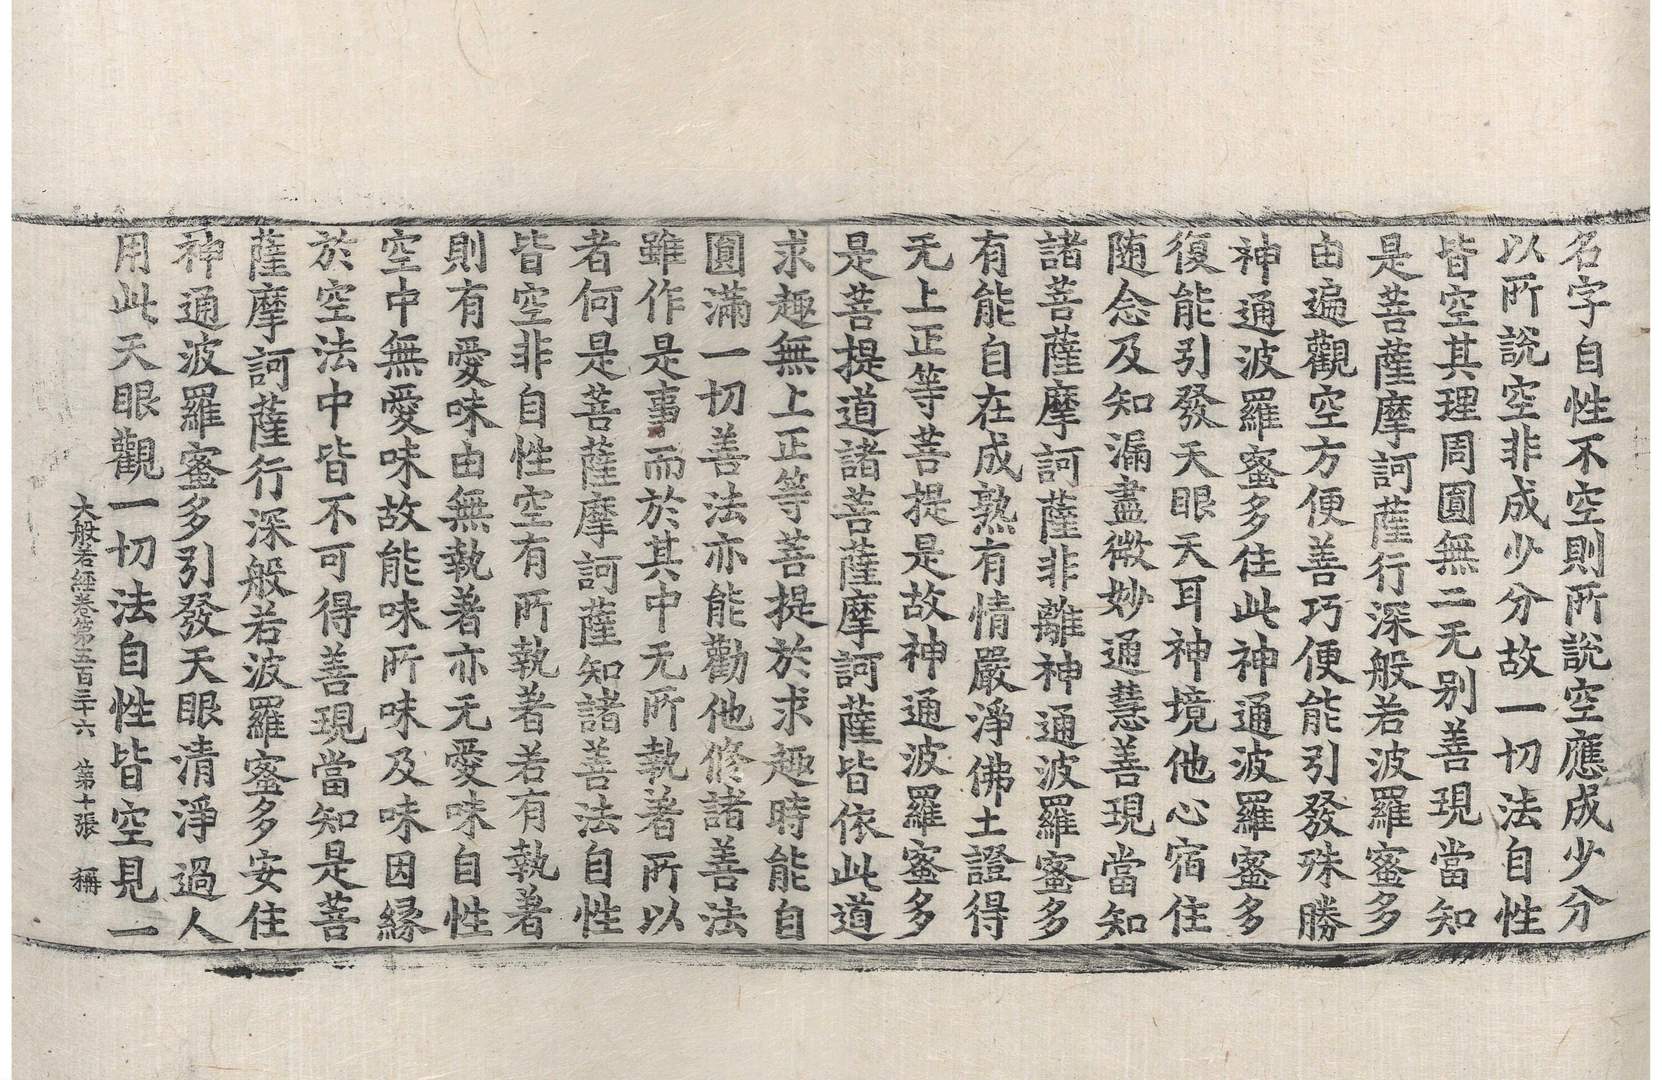 名字自性不空則所說空應成少分
以所說空非成少分故一切法自性
皆空其理周圓無二无别善現當知
是菩薩摩訶薩行深般若波羅蜜多
由遍觀空方便善巧便能引發殊勝
神通波羅蜜多住此神通波羅蜜多
復能引發天眼天耳神境他心宿住
随念及知漏盡微妙通慧善現當知
諸菩薩摩訶薩非離神通波羅蜜多
有能自在成熟有情嚴淨佛土證得
无上正等菩提是故神通波羅蜜多
是菩提道諸菩薩摩訶薩皆依此道
求趣無上正等菩提於求趣時能自
圓滿一切善法亦能勸他修諸善法
雖作是事而於其中无所執著所以
者何是菩薩摩訶薩知諸善法自性
皆空非自性空有所執著若有執著
則有愛味由無執著亦无愛味自性
空中無愛味故能味所味及味因緣
於空法中皆不可得善現當知是菩
薩摩訶薩行深般若波羅蜜多安住
神通波羅蜜多引發天眼清淨過人
用此天眼觀一切法自性皆空見一
大般若經卷第五百三十六 第十張 稱